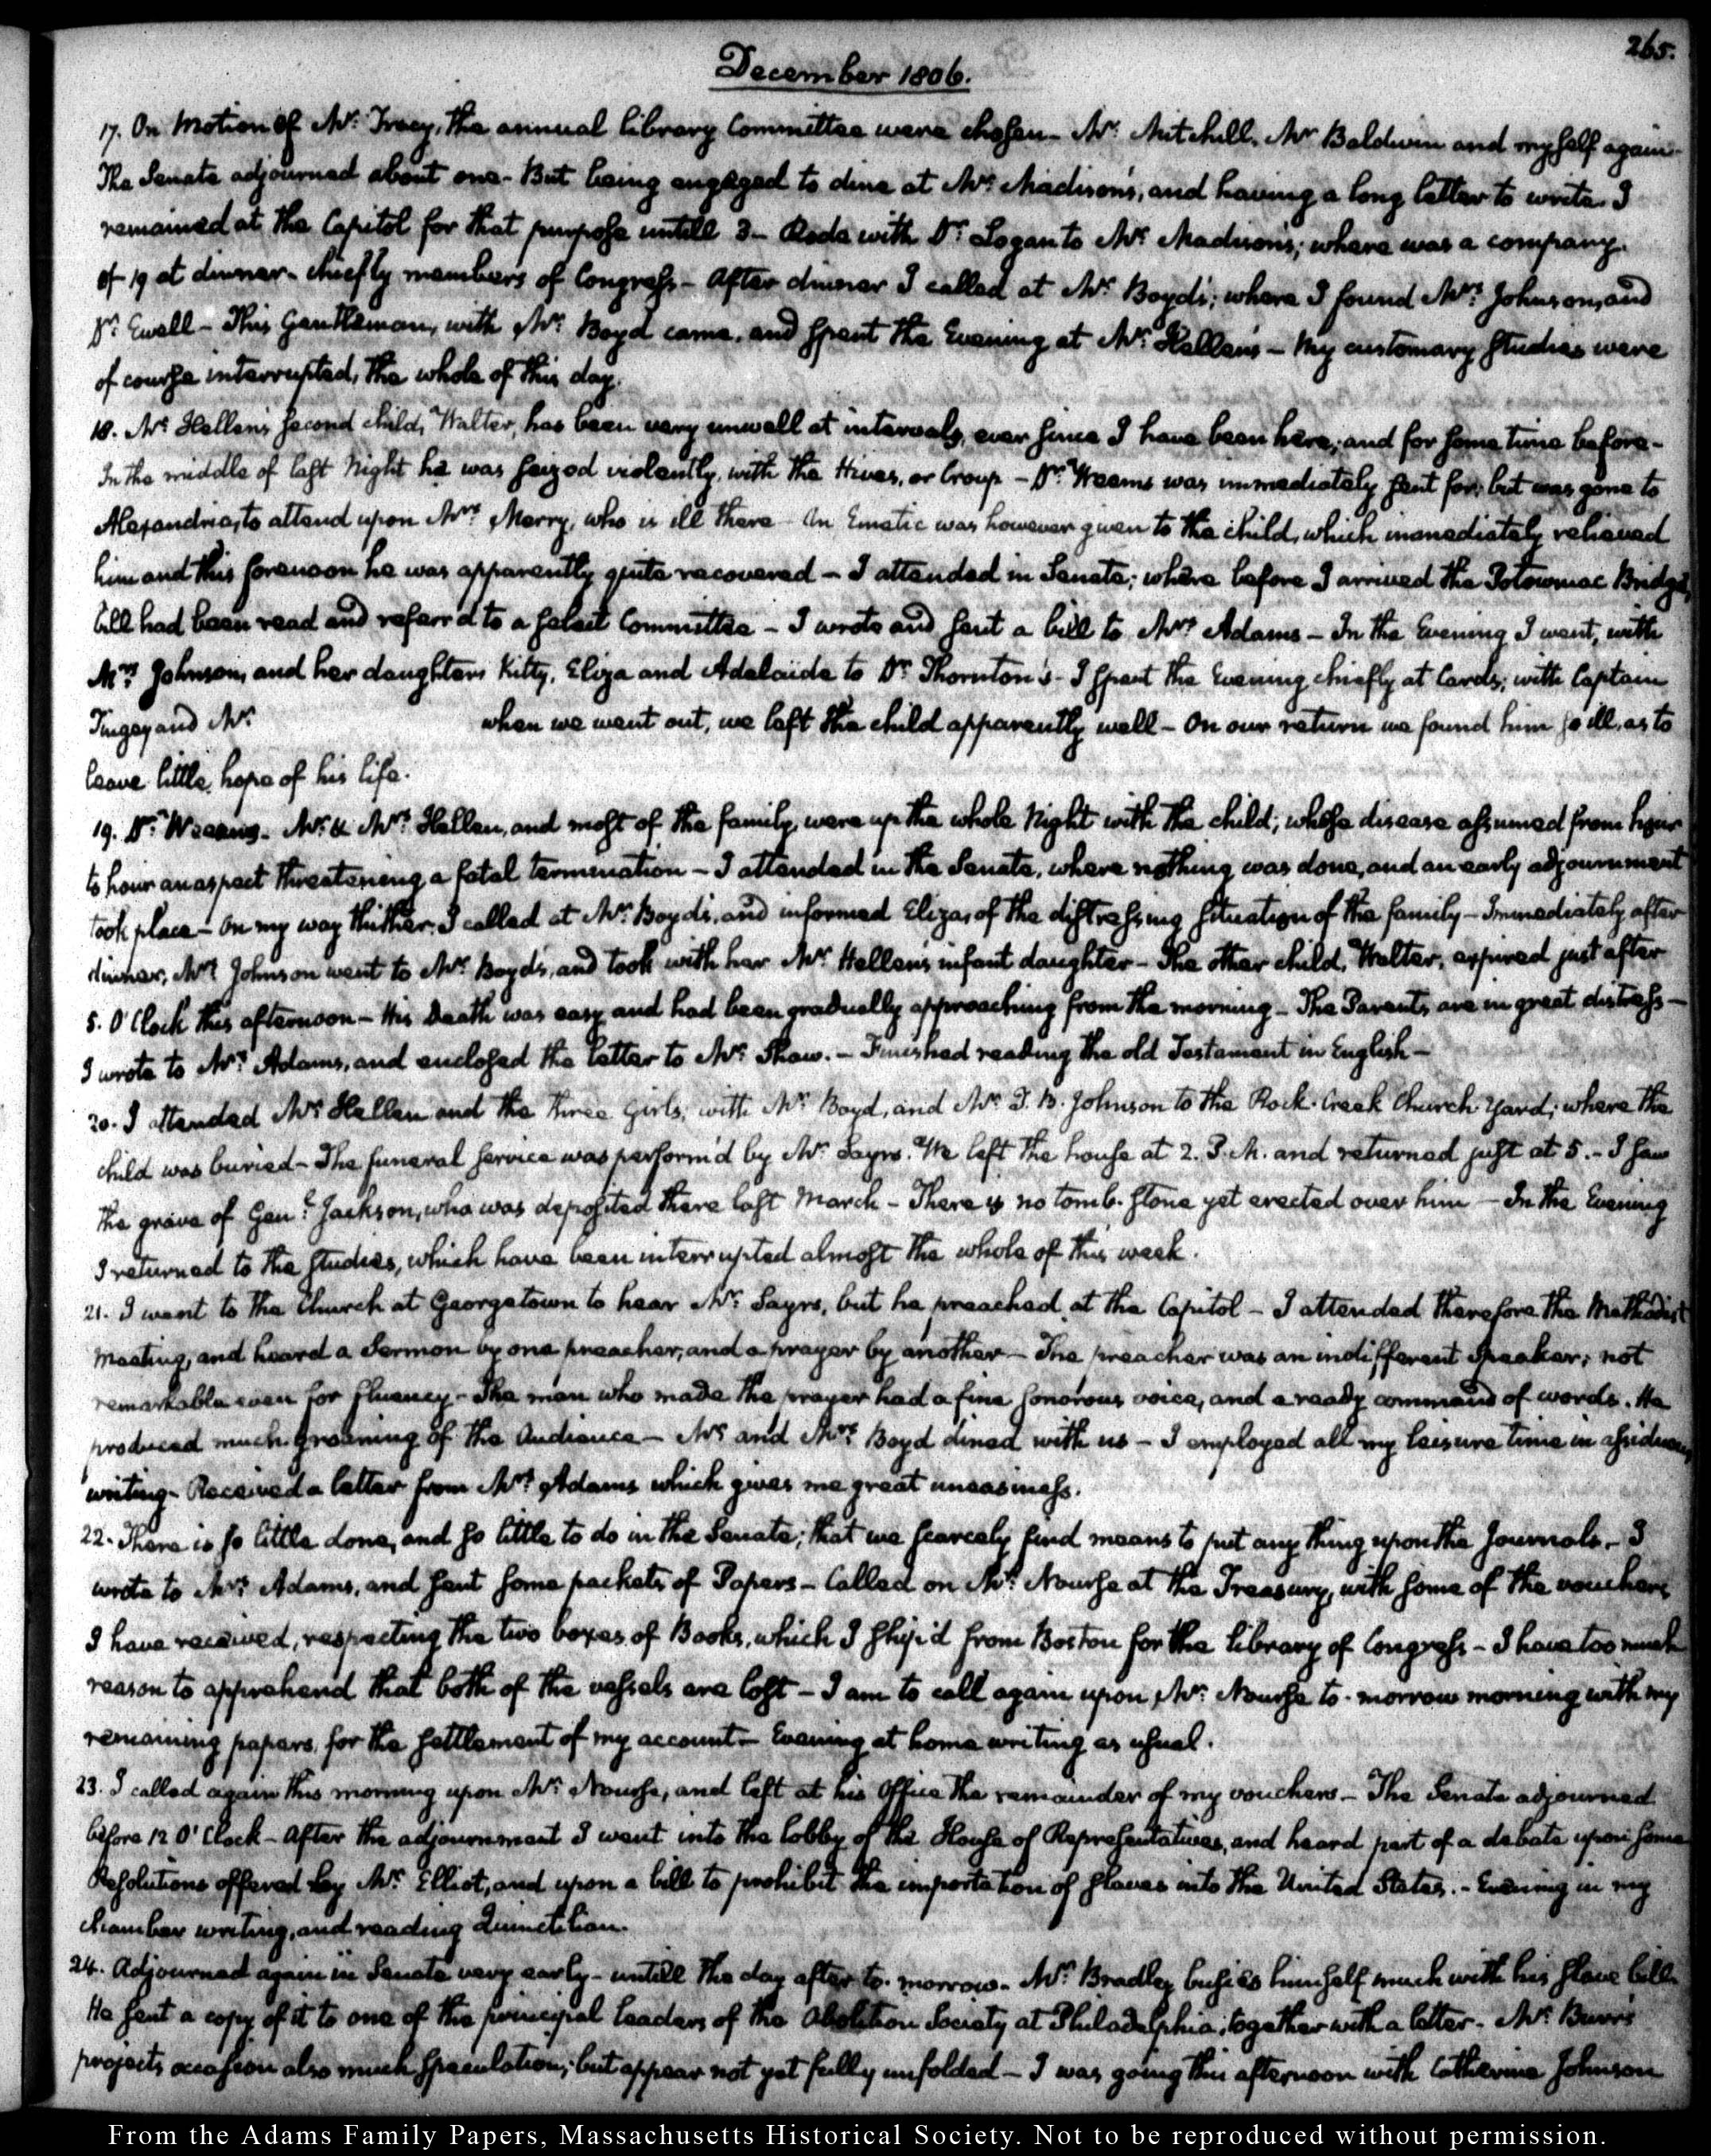 265.
December 1806.
17. On Motion of Mr. Tracy, the annual library Committee were chosen - Mr. Mitchill, Mr Baldwin and myself again -
The Senate adjourned about one - But being engaged to dine at Mr. Madison's, and having a long letter to write I
remained at the Capitol for that purpose untill 3 - Rode with Dr. Logan to Mr. Madison's; where was a company
of 19 at dinner - chiefly members of Congress - After dinner I called at Mr. Boyd's; where I found Mrs. Johnson, and
Dr. Ewell - This Gentleman, with Mr. Boyd came, and spent the Evening at Mr. Hellen's - My customary studies were
of course interrupted, the whole of this day.
18. Mr. Hellen's second child, Walter, has been very unwell at intervals, ever since I have been here; and for some time before -
In the middle of last Night he was seized violently, with the Hives, or Croup - Dr. Weems was immediately sent for; but was gone to
Alexandria, to attend upon Mrs. Merry, who is ill there - An Emetic was however given to the child, which immediately relieved
him and this forenoon he was apparently quite recovered - I attended in Senate; where before I arrived the Potowmac Bridge
bill had been read and referr'd to a select Committee - I wrote and sent a bill to Mrs. Adams - In the Evening I went, with
Mrs. Johnson, and her daughters Kitty, Eliza and Adelaide to Dr. Thornton's - I spent the Evening chiefly at Cards; with Captain
Tingey and Mr. when we went out, we left the child apparently well - On our return we found him so ill, as to
leave little hope of his life.
19. Dr. Weems. Mr. & Mrs. Hellen, and most of the family, were up the whole Night with the child; whose disease assumed from hour
to hour an aspect threatening a fatal termination - I attended in the Senate, where nothing was done, and an early adjournment
took place - On my way thither, I called at Mr. Boyd's, and informed Eliza, of the distressing situation of the family - Immediately after
dinner, Mrs. Johnson went to Mr. Boyd's, and took with her Mr. Hellen's infant daughter - The other child, Walter, expired just after
5. O'Clock this afternoon - His Death was easy and had been gradually approaching from the morning - The Parents are in great distress -
I wrote to Mrs. Adams, and enclosed the letter to Mr. Shaw. - Finished reading the old Testament in English -
20. I attended Mr. Hellen and the three girls, with Mr. Boyd, and Mr. T. B. Johnson to the Rock-Creek Church-Yard; where the
child was buried - The funeral service was perform'd by Mr. Sayrs. We left the house at 2. P. M. and returned just at 5. - I saw
the grave of Genl. Jackson, who was deposited there last March - There is no tomb-stone yet erected over him - In the Evening
I returned to the studies, which have been interrupted almost the whole of this week.
21. I went to the Church at Georgetown to hear Mr. Sayrs, but he preached at the Capitol - I attended therefore the Methodist
Meeting, and heard a Sermon by one preacher, and a prayer by another - The preacher was an indifferent speaker; not
remarkable even for fluency - The man who made the prayer had a fine sonorous voice, and a ready command of words. He
produced much groaning of the Audience - Mr. and Mrs. Boyd dined with us - I employed all my leisure time in assiduous
writing - Received a letter from Mrs. Adams which gives me great uneasiness.
22. There is so little done, and so little to do in the Senate; that we scarcely find means to put any thing upon the Journals. - I
wrote to Mrs. Adams, and sent some packets of Papers - Called on Mr. Nourse at the Treasury, with some of the vouchers
I have received, respecting the two boxes of Books, which I ship'd from Boston for the library of Congress - I have too much
reason to apprehend that both of the vessels are lost - I am to call again upon Mr. Nourse to-morrow morning with my
remaining papers, for the settlement of my account - Evening at home writing as usual.
23. I called again this morning upon Mr. Nourse, and left at his Office the remainder of my vouchers. - The Senate adjourned
before 12 O'Clock - After the adjournment I went into the lobby of the House of Representatives, and heard part of a debate upon some
Resolutions offered by Mr. Elliot, and upon a bill to prohibit the importation of slaves into the United States. - Evening in my
chamber writing, and reading Quinctilian.
24. Adjourned again in Senate very early - untill the day after to-morrow. Mr. Bradley busies himself much with his slave bill.
He sent a copy of it to one of the principal leaders of the Abolition Society at Philadelphia; together with a letter. Mr. Burr's
projects occasion also much speculation; but appear not yet fully unfolded - I was going this afternoon with Catherine Johnson
From the Adams Family Papers, Massachusetts Historical Society. Not to be reproduced without permission.